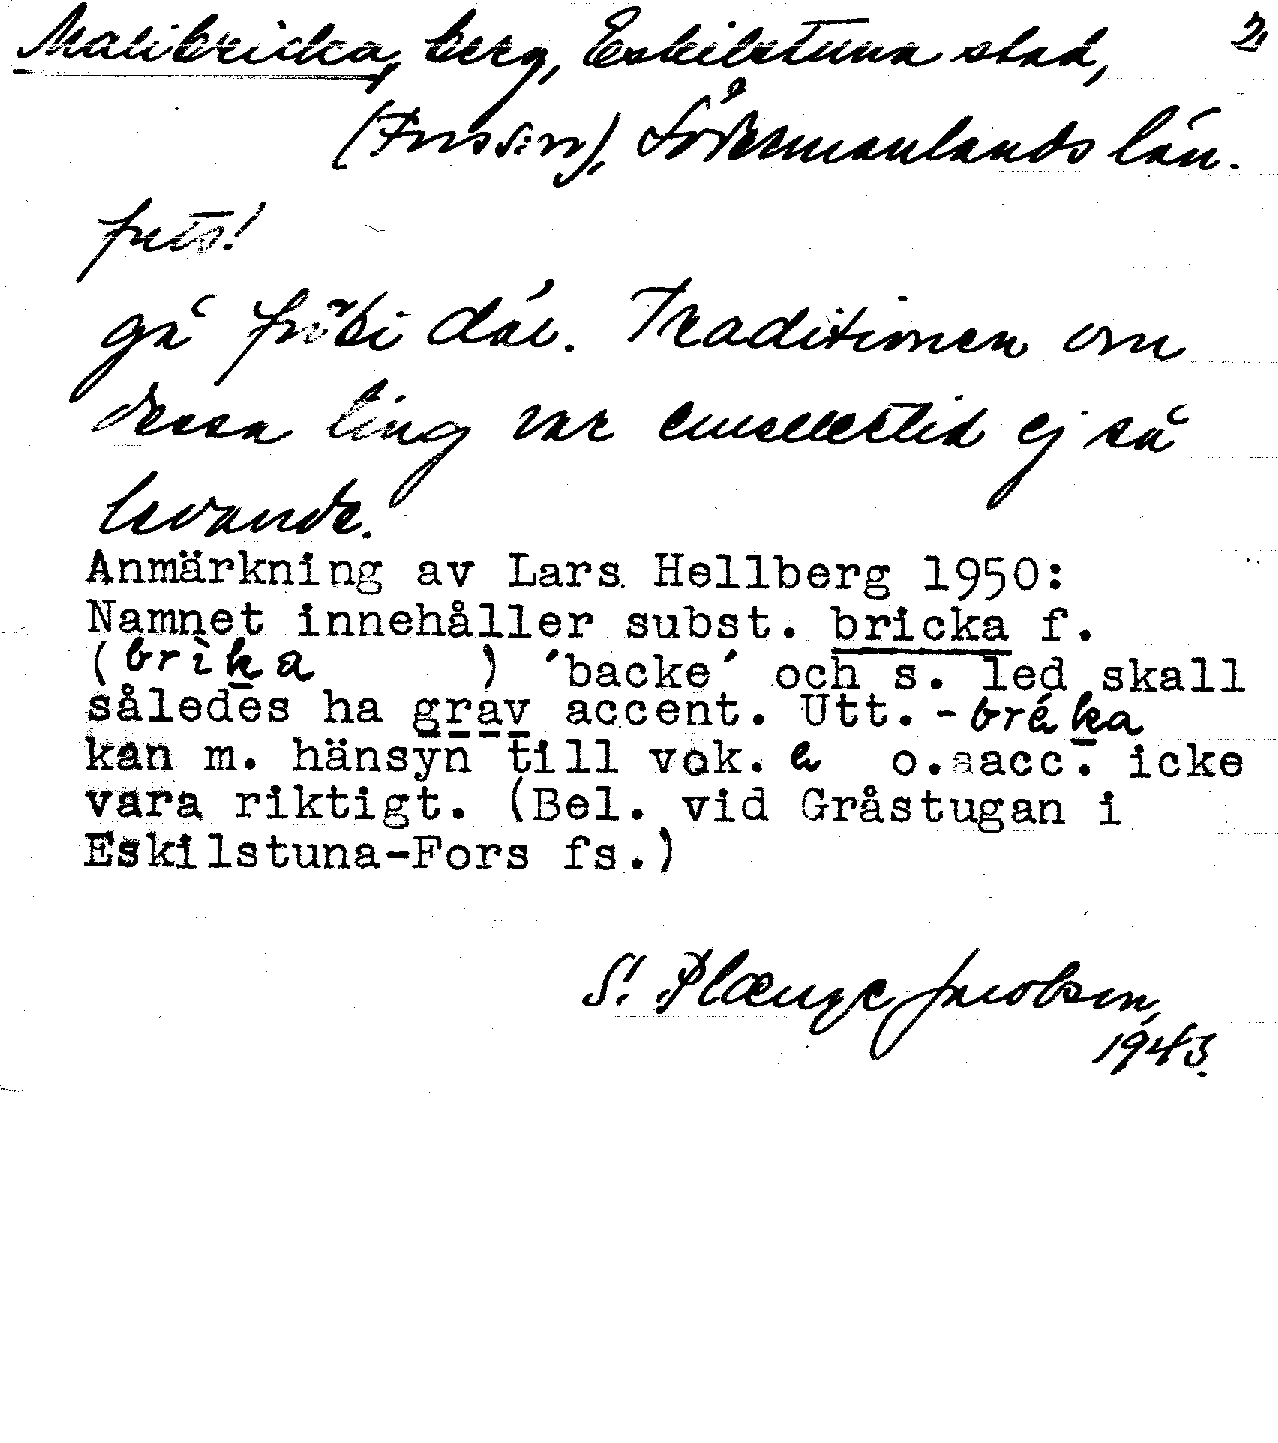 Malibricka, berg, Eskilstuna stad, 2
(Fors s:n), Södermanlands län.
forts!
gå förbi där. Traditionen om
dessa ting var emellertid ej så
levande.
Anmärkning av Lars Hellberg 1950:
Namnet innehåller subst. bricka f.
(brìka ) 'backe' och s. led skall
således ha grav accent. Utt. -bréka
kan m. hänsyn till vok. e o. acc. icke
vara riktigt. (Bel. vid Gråstugan i
Eskilstuna-Fors fs.)
S. Plænge Jacobson,
1943.